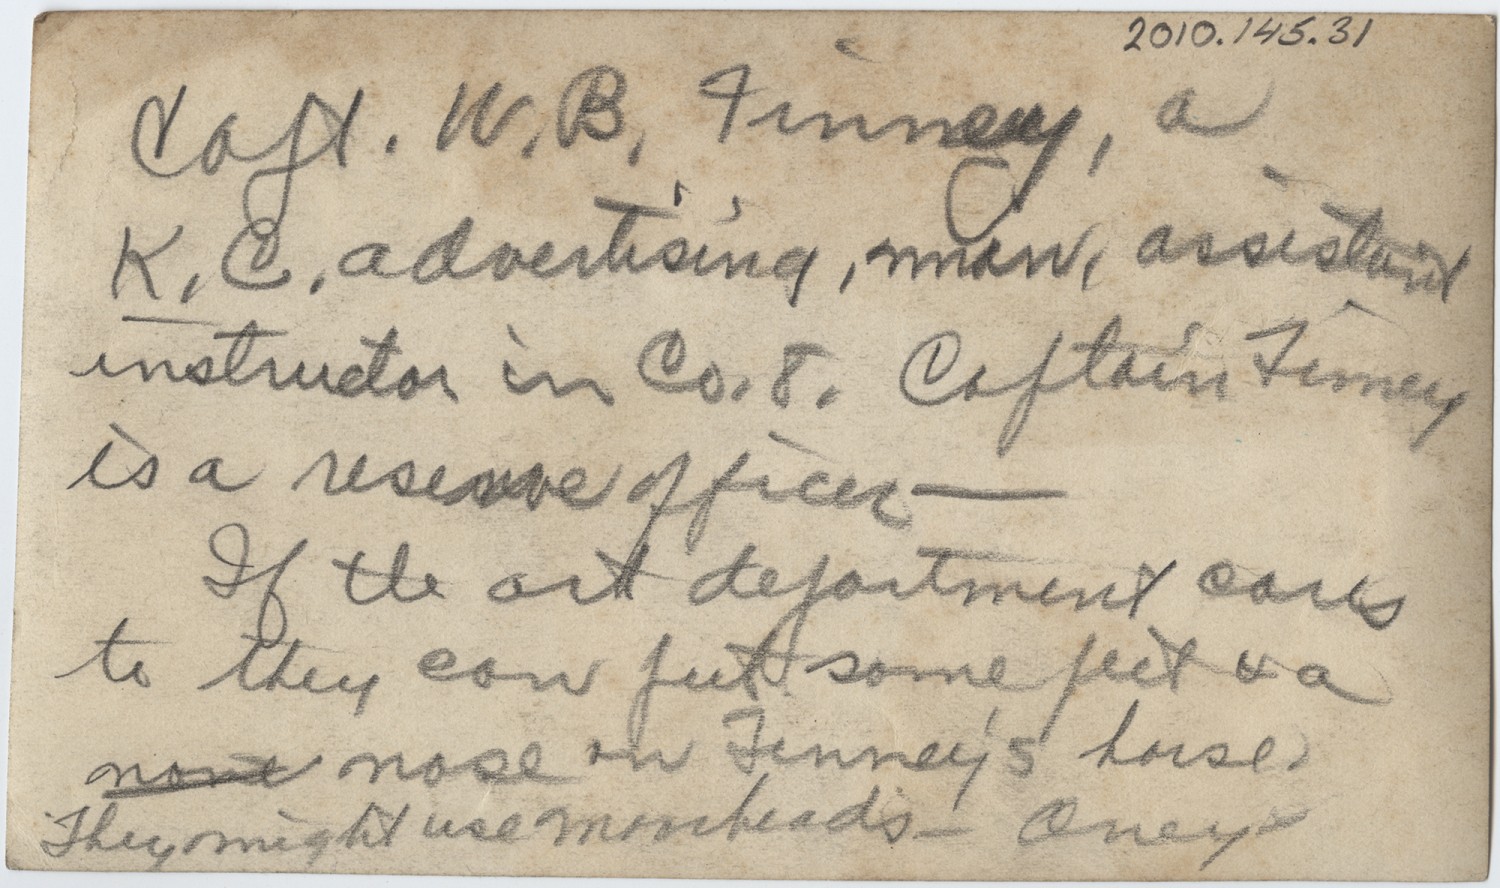 2010.145.31
Capt. W. B. Finney, a
K. C. advertising, man, assistant
instructor in Co. 8. Captain Finney
is a reserve officer —
If the art department cares
to they can put some feet & a
nose on Finney's horse.
They might use Moorheads — Oney